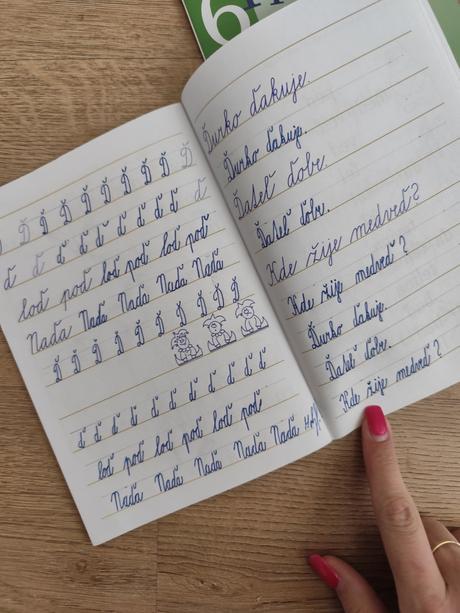 Ď Ď Ď Ď Ď Ď Ď Ď Ď
ď ď ď ď ď ď ď ď ď
loď poď loď poď loď poď
Naďa Naďa Naďa Naďa Naďa
Ď Ď Ď Ď Ď Ď Ď Ď Ď Ď
ď ď ď ď ď ď ď ď ď ď
loď poď loď poď loď poď
Naďa Naďa Naďa Naďa Naďa
Ďurko ďakuje.
Ďurko ďakuje.
Ďateľ ďobe.
Ďateľ ďobe.
Kde žije medveď?
Kde žije medveď?
Ďurko ďakuje.
Ďateľ ďobe.
Kde žije medveď?
6